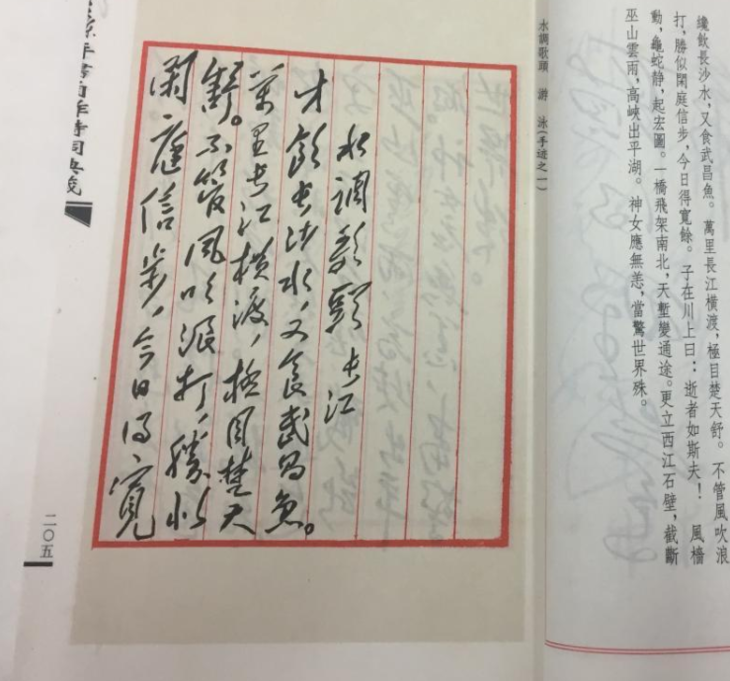 纔飲長沙水，又食武昌魚。萬里長江橫渡，極目楚天舒。 不管風吹浪
打，勝似閑庭信步，今日得寬餘。子在川上曰：逝者如斯夫！ 風檣
動，龜蛇静，起宏圖。一橋飛架南北，天塹變通途。更立西江石壁，截斷
巫山雲雨，高峽出平湖。 神女應無恙，當驚世界殊。
水調歌頭 游 泳（手迹之一）
水調歌頭 長江
才飲長沙水，又食武昌魚。
萬里長江橫渡，極目楚天
舒。不管風吹浪打，勝似
閑庭信步，今日得寬
手書自作詩詞典
二〇五